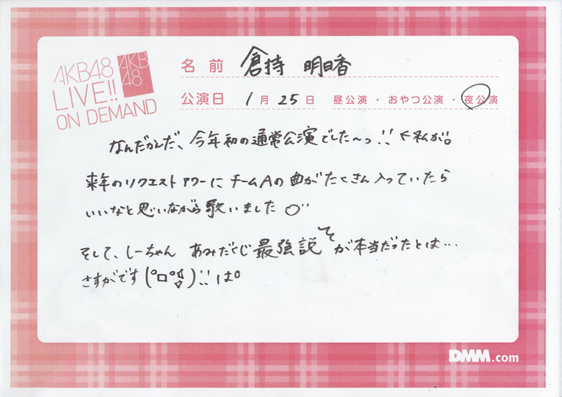 AKB48
LIVE!!
ON DEMAND
AKB
48
名前 倉持 明日香
公演日 1月25日 昼公演・おやつ公演・夜公演
なんだかんだ、今年初の通常公演でした〜っ!! ←私が。
来年のリクエストアワーに チームAの曲がたくさん入っていたら
いいなと思いながら歌いました
そして、しーちゃん あみだくじ最強説 が本当だったとは…
さすがです
DMM.com